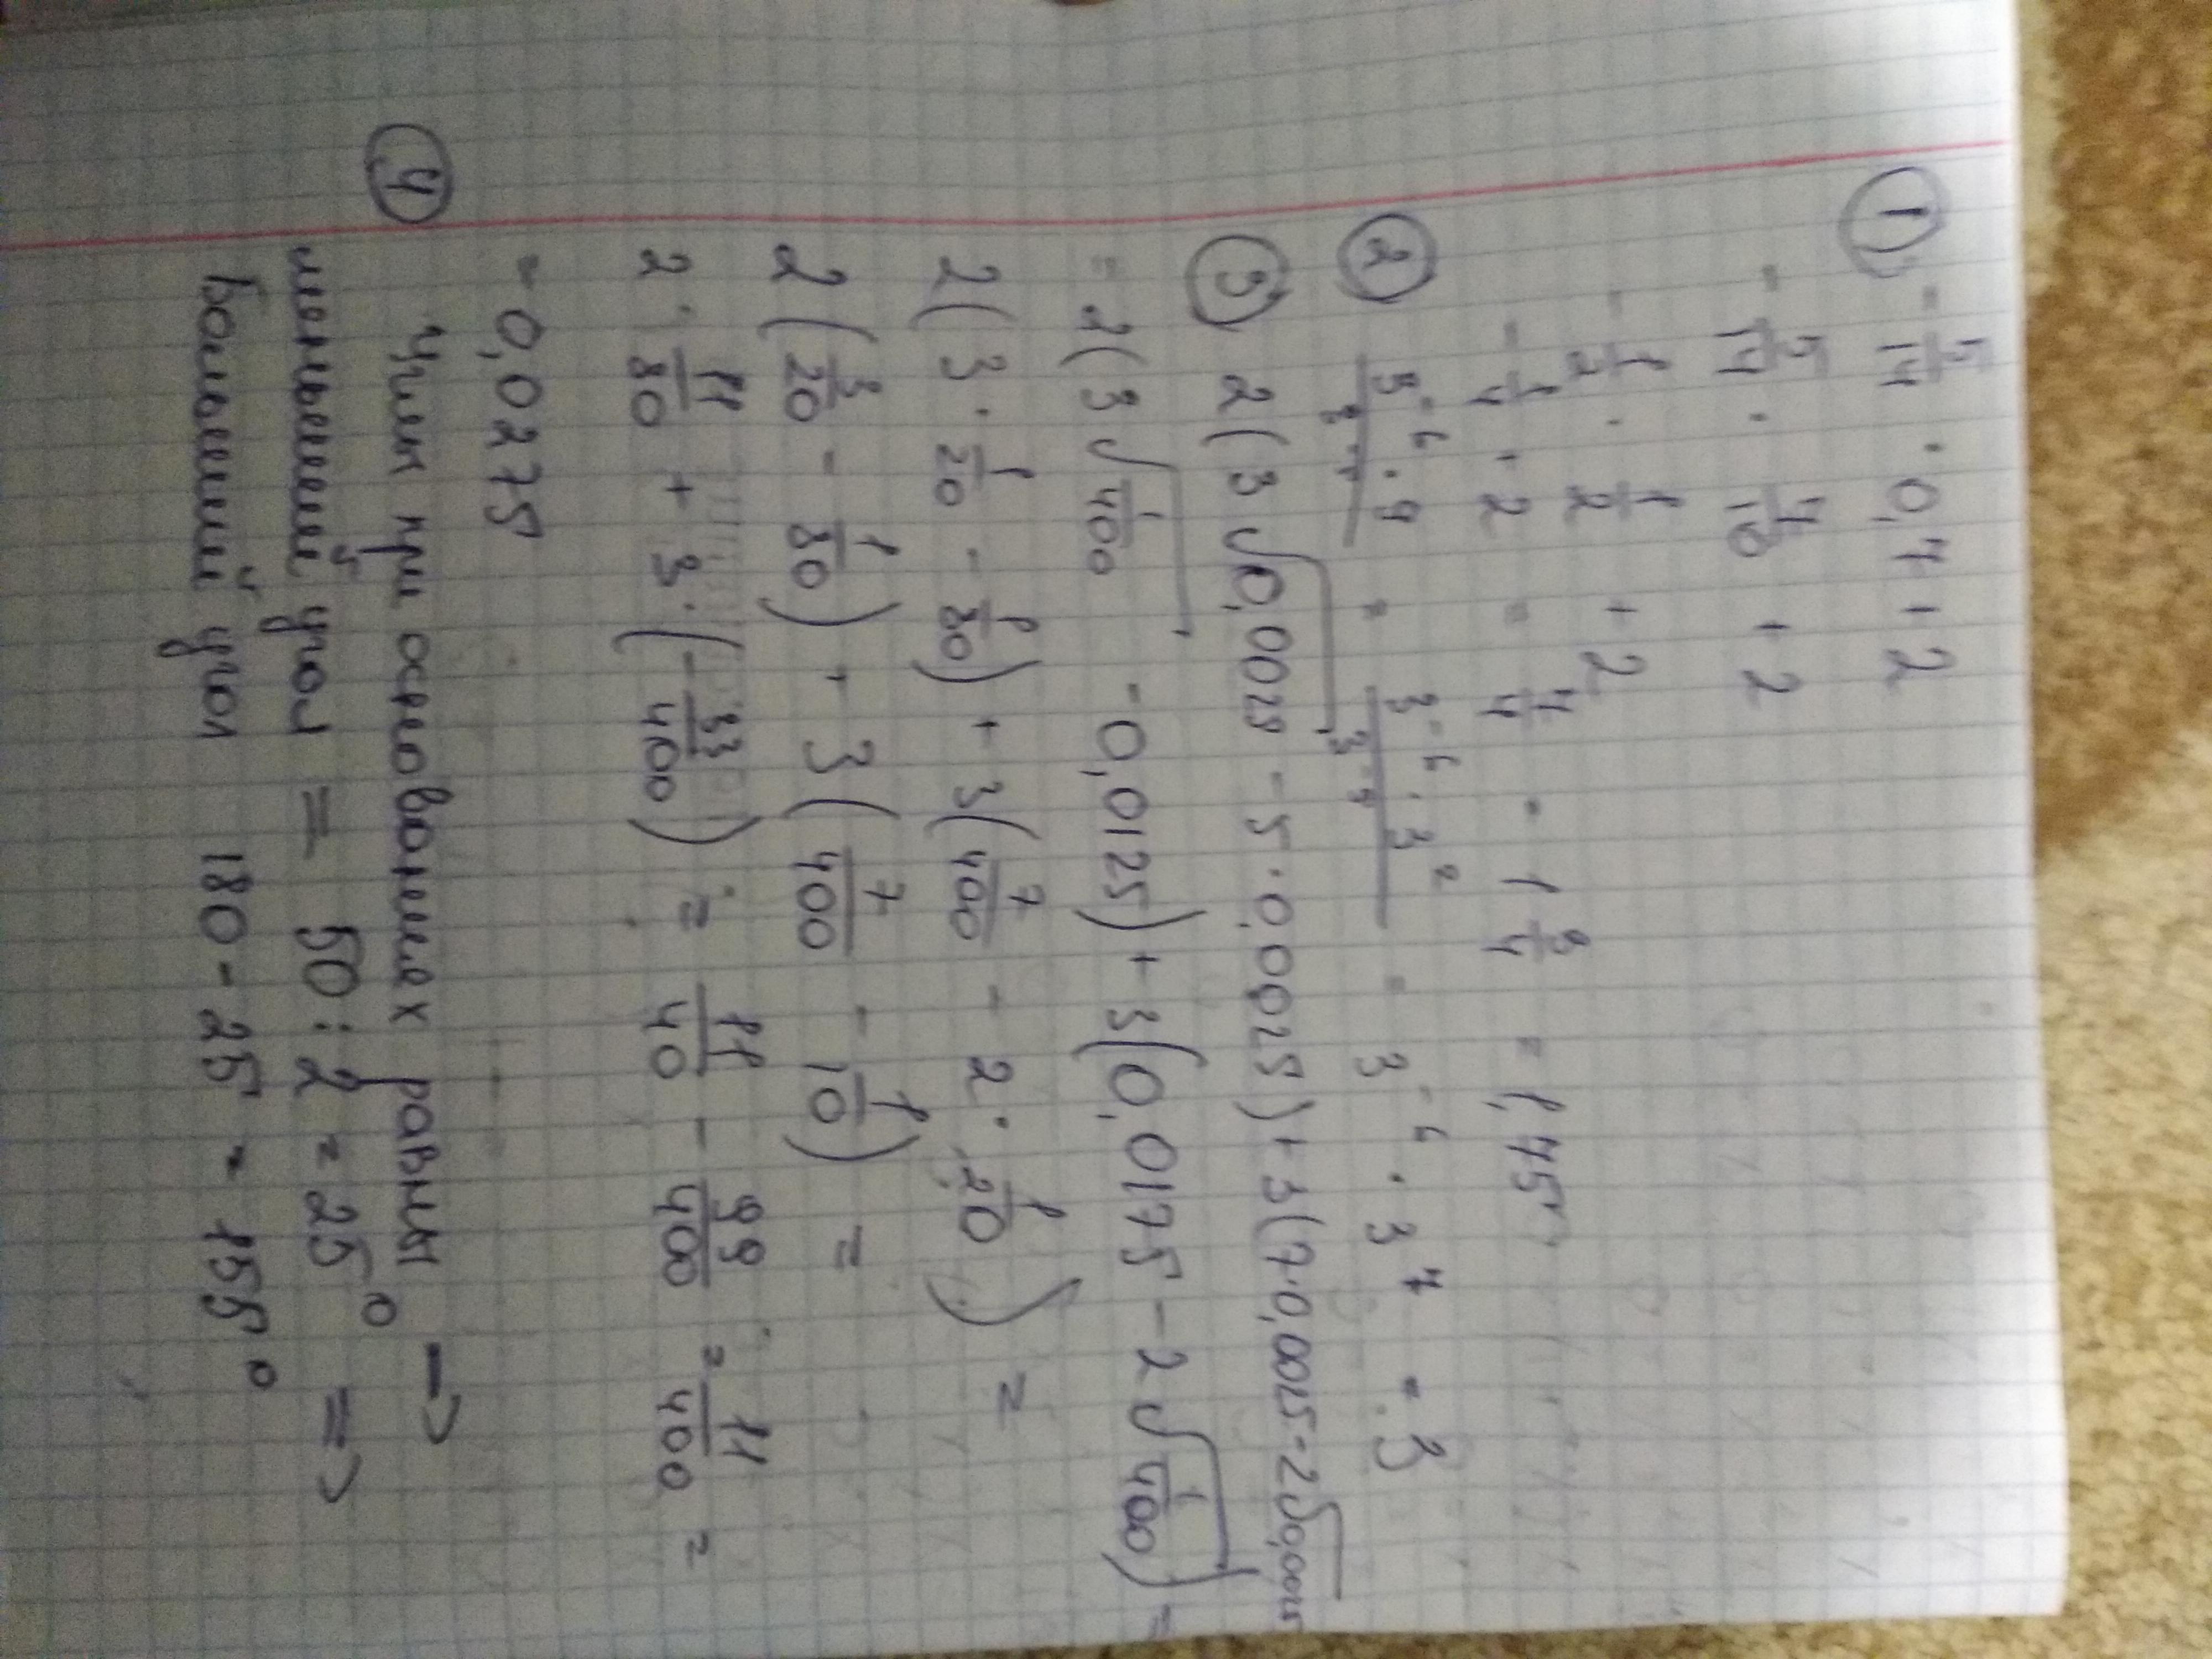 ① - 5/14 · 0,4 + 2
- 5/14 · 4/10 + 2
- 1/2 · 1/2 + 2
- 1/4 + 2 = 7/4 = 1 3/4 = 1,75
② = 3^-6 · 3^2 / 3^-7 = 3^-6 · 3^7 = 3
③ 2(3√0,0025 - 5·0,0025) + 3(7·0,0025 - 2√0,0025
= 2(3√1/400 - 0,0125) + 3(0,0175 - 2√1/400) =
2(3 · 1/20 - 1/80) + 3(7/400 - 2 · 1/20) =
2(3/20 - 1/80) + 3(7/400 - 1/10) =
2 · 11/80 + 3 · (- 33/400) = 11/40 - 99/400 = 11/400 =
= 0,0275
④ Углы при основаниях равны →
меньший угол = 50 : 2 = 25° =>
Больший угол 180 - 25 = 155°